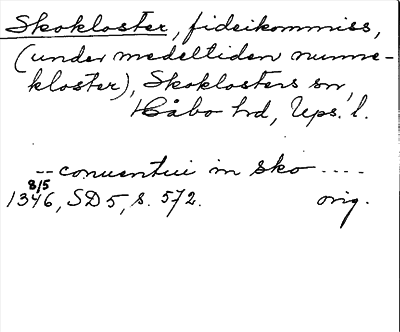 Skokloster, fideikommiss,
(under medeltiden nunne-
kloster), Skoklosters sn,
Håbo hd, Ups. l.
-- conuentui in sko ....
8/5
1346, SD 5, s. 572. orig.